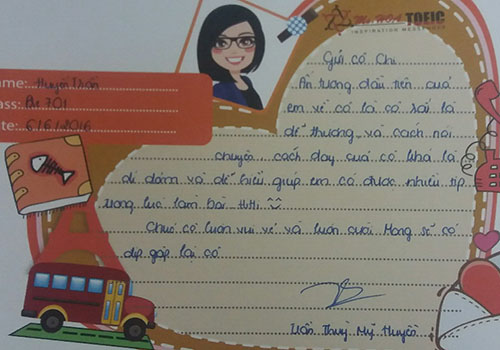 Ms Hoa TOEIC
INSPIRATION MESSENGER
Name: Huyền Trân
Class: Pre 701
Date: 6/6/2016
Gửi cô Chi
Ấn tượng đầu tiên của
em về cô là cô rất là
dễ thương và cách nói
chuyện, cách dạy của cô khá là
dí dỏm và dễ hiểu giúp em có được nhiều tip
trong lúc làm bài. Hihi
Chúc cô luôn vui vẻ và luôn cười. Mong sẽ có
dịp gặp lại cô
Trần Thuỵ Mỹ Huyền